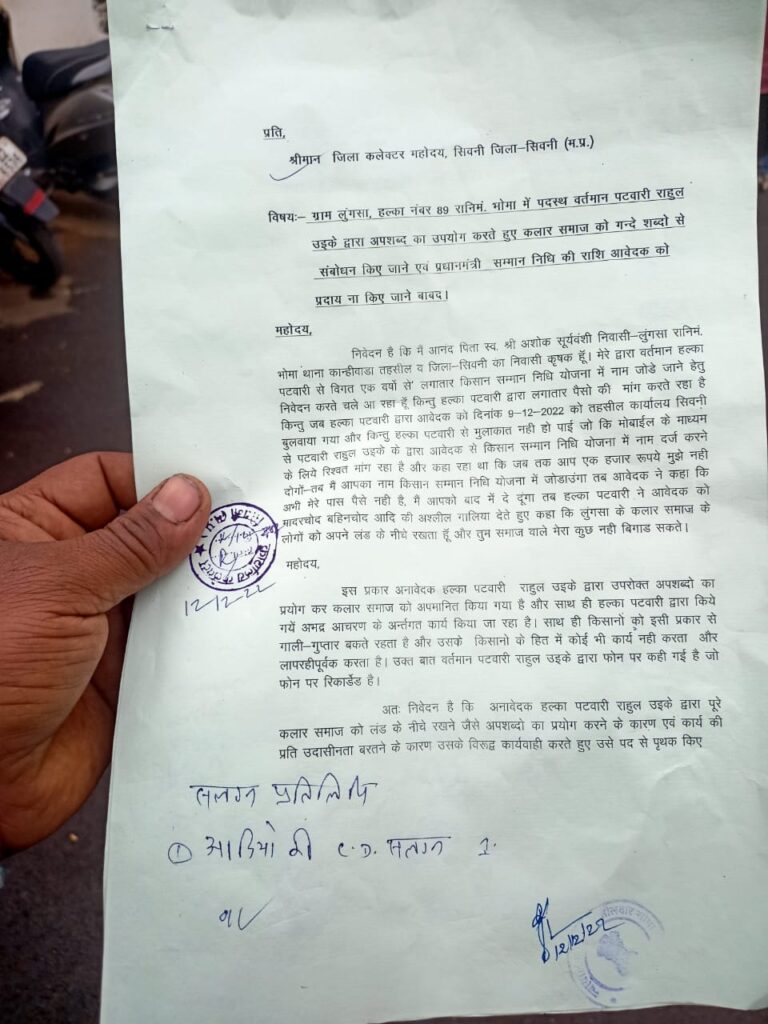 प्रति,
श्रीमान जिला कलेक्टर महोदय, सिवनी जिला–सिवनी (म.प्र.)
विषयः– ग्राम लुंगसा, हल्का नंबर 89 रानिमं. भोमा में पदस्थ वर्तमान पटवारी राहुल
उइके द्वारा अपशब्द का उपयोग करते हुए कलार समाज को गन्दे शब्दो से
संबोधन किए जाने एवं प्रधानमंत्री सम्मान निधि की राशि आवेदक को
प्रदाय ना किए जाने बाबद।
महोदय,
निवेदन है कि मैं आनंद पिता स्व. श्री अशोक सूर्यवंशी निवासी–लुंगसा रानिमं.
भोमा थाना कान्हीवाडा तहसील व जिला–सिवनी का निवासी कृषक हूँ। मेरे द्वारा वर्तमान हल्का
पटवारी से विगत एक वर्षो से' लगातार किसान सम्मान निधि योजना में नाम जोडे जाने हेतु
निवेदन करते चले आ रहा हूँ किन्तु हल्का पटवारी द्वारा लगातार पैसो की मांग करते रहा है
किन्तु जब हल्का पटवारी द्वारा आवेदक को दिनांक 9–12–2022 को तहसील कार्यालय सिवनी
बुलवाया गया और किन्तु हल्का पटवारी से मुलाकात नही हो पाई जो कि मोबाईल के माध्यम
से पटवारी राहुल उइके के द्वारा आवेदक से किसान सम्मान निधि योजना में नाम दर्ज करने
के लिये रिश्वत मांग रहा है और कहा रहा था कि जब तक आप एक हजार रूपये मुझे नही
दोगों–तब मै आपका नाम किसान सम्मान निधि योजना में जोडाउंगा तब आवेदक ने कहा कि
अभी मेरे पास पैसे नही है, मै आपको बाद में दे दूंगा तब हल्का पटवारी ने आवेदक को
मादरचोद बहिनचोद आदि की अश्लील गालिया देते हुए कहा कि लुंगसा के कलार समाज के
लोगों को अपने लंड के नीचे रखता हूँ और तुम समाज वाले मेरा कुछ नही बिगाड सकते।
महोदय,
इस प्रकार अनावेदक हल्का पटवारी राहुल उइके द्वारा उपरोक्त अपशब्दो का
प्रयोग कर कलार समाज को अपमानित किया गया है और साथ ही हल्का पटवारी द्वारा किये
गयें अभद्र आचरण के अर्न्तगत कार्य किया जा रहा है। साथ ही किसानों को इसी प्रकार से
गाली–गुप्तार बकते रहता है और उसके किसानो के हित में कोई भी कार्य नही करता और
लापरहीपूर्वक करता है। उक्त बात वर्तमान पटवारी राहुल उइके द्वारा फोन पर कही गई है जो
फोन पर रिकार्डेड है।
अतः निवेदन है कि अनावेदक हल्का पटवारी राहुल उइके द्वारा पूरे
कलार समाज को लंड के नीचे रखने जैसे अपशब्दो का प्रयोग करने के कारण एवं कार्य की
प्रति उदासीनता बरतने के कारण उसके विरूद्व कार्यवाही करते हुए उसे पद से पृथक किए
12-12-22
सलग्न प्रतिलिपि
① आडियो की C.D. सलग्न 1.
12/12/22